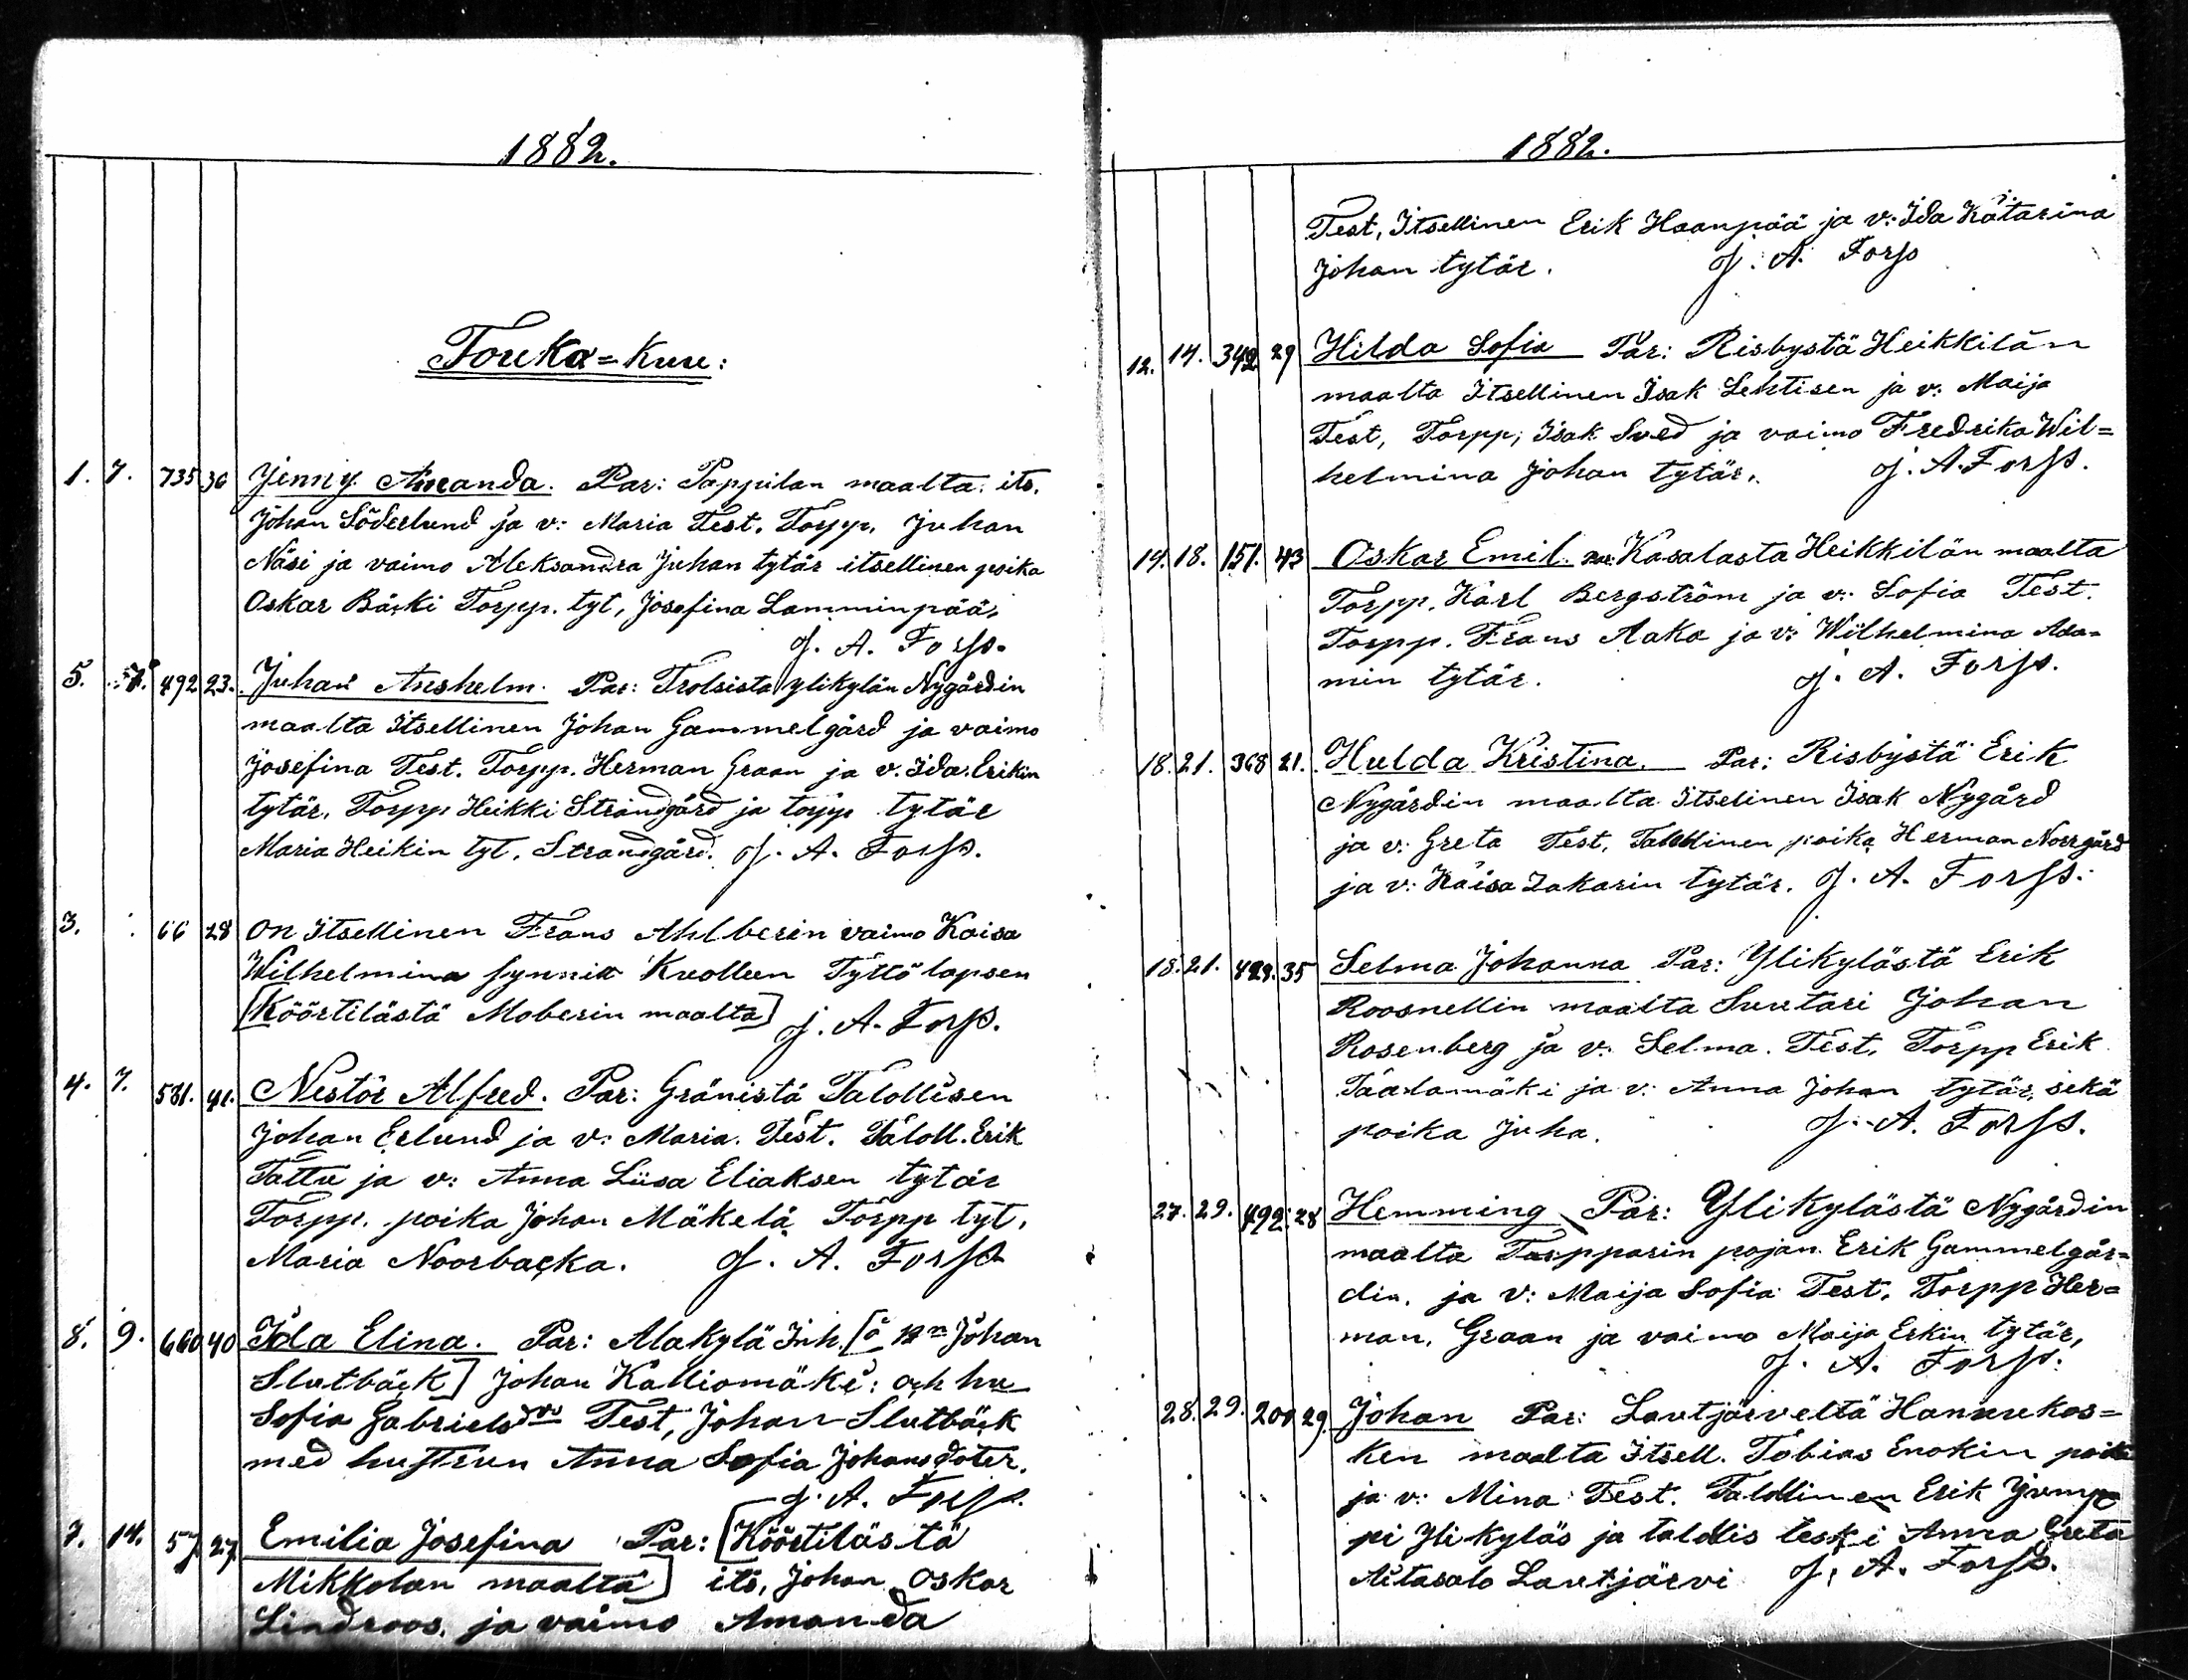 1882.
Touko=kuu:
1. 7. 735 36 Jenny Amanda. Par: Pappilan maalta. its.
Johan Söderlund ja v: Maria Test. Torpp. Juhan
Näsi ja vaimo Aleksandra Juhan tytär itsellinen poika
Oskar Bäcki Torpp. tyt, Josefina Lamminpää,
J. A. Forss.
5. 7. 492 23. Juhan Anshelm. Par: Trolsista Ylikylän Nygårdin
maalta Itsellinen Johan Gammelgård ja vaimo
Josefina Test. Torpp. Herman Graan ja v. Ida Erikin
tytär, Torpp Heikki Strandgård ja torpp tytär
Maria Heikin tyt. Strandgård. J. A. Forss.
3. 66 28 On Itsellinen Frans Ahlberin vaimo Kaisa
Wilhelmina synnitt Kuolleen Tyttölapsen
[Köörtilästä Moberin maalta] J. A. Forss.
4. 7. 581. 41. Nestor Alfred. Par: Gränistä Talollisen
Johan Erlund ja v: Maria. Test. Taloll. Erik
Tattu ja v: Anna Liisa Eliaksen tytär
Torpp. poika Johan Mäkelä Torpp tyt.
Maria Noorbacka. J. A. Forss
8. 9. 660 40 Ida Elina. Par: Alakylä Inh. [å Johan
Slutbäck] Johan Kalliomäki: och hu
Sofia Gabrielsdr Test, Johan Slutbäck
med hustrun Anna Sofia Johansdoter.
J. A. Forss.
7. 14. 57 27 Emilia Josefina Par: [Köörtilästä
Mikkolan maalta] its, Johan Oskar
Lindroos. ja vaimo Amanda
1882.
Test, Itsellinen Erik Haanpää ja v: Ida Katarina
Johan tytär. J. A. Forss
12. 14. 342 29 Hilda Sofia Par: Risbystä Heikkilän
maalta Itsellinen Isak Lehtisen ja v: Maija
Test, Torpp; Isak Sved ja vaimo Fredrika Wil=
helmina Johan tytär. J. A. Forss.
14. 18. 151. 43 Oskar Emil. Par: Kasalasta Heikkilän maalta
Torpp. Karl Bergström ja v: Sofia Test.
Torpp. Frans Aaka ja v: Wilhelmina Ada=
min tytär. J. A. Forss.
18. 21. 368 21. Hulda Kristina. Par: Risbystä Erik
Nygårdin maalta Itselinen Isak Nygård
ja v: Greta Test, Talollinen poika Herman Norrgård
ja v: Kaisa Zakarin tytär. J. A. Forss.
18. 21. 429. 35 Selma Johanna Par: Ylikylästä Erik
Roosnellin maalta Suutari Johan
Rosenberg ja v: Selma. Test, Torpp Erik
Taalamäki ja v: Anna Johan tytär, sekä
poika Juha. J. A. Forss.
27. 29. 492. 28 Hemming Par: Ylikylästä Nygårdin
maalta Torpparin pojan Erik Gammelgår=
din. ja v: Maija Sofia Test, Torpp Her=
man, Graan ja vaimo Maija Erkin tytär,
J. A. Forss.
28. 29. 200 29. Johan Par: Lautjärveltä Hannukos=
ken maalta Itsell. Tobias Enokin poika
ja v: Mina Test. Talollinen Erik Jump
pi Ylikyläs ja talollis leski Anna Greta
Aitasalo Lautjärvi J. A. Forss.